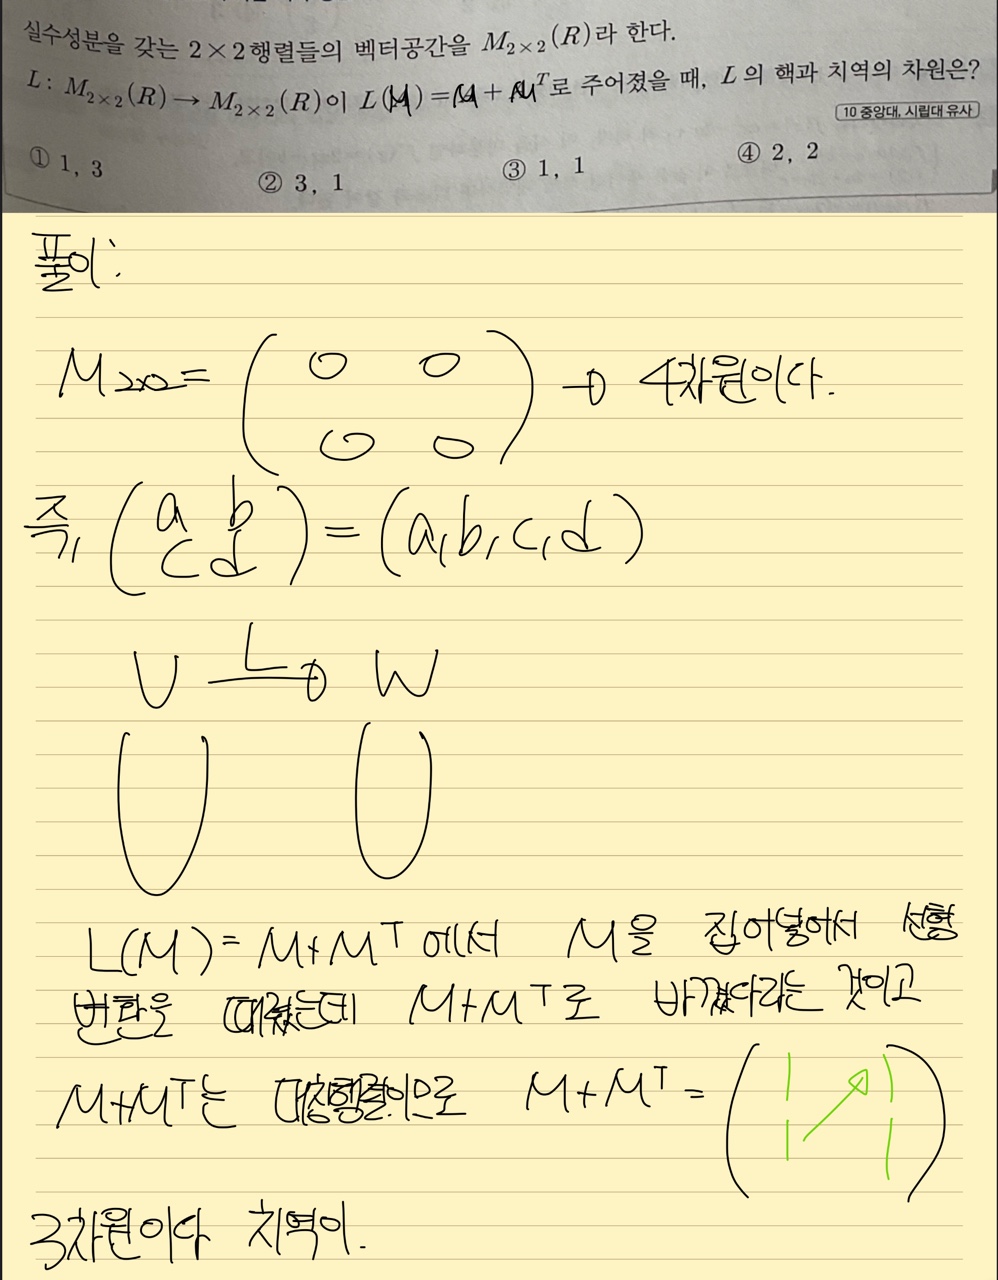 실수성분을 갖는 2×2행렬들의 벡터공간을 M₂ₓ₂(R)라 한다.
L: M₂ₓ₂(R)→M₂ₓ₂(R)이 L(M)=M+Mᵀ로 주어졌을 때, L의 핵과 치역의 차원은?
10 중앙대, 시립대 유사
① 1, 3
② 3, 1
③ 1, 1
④ 2, 2
풀이:
M₂ₓ₂= (0 0 0 0) → 4차원이다.
즉, (a b c d) = (a, b, c, d)
V L→ W
L(M) = M+Mᵀ에서 M을 집어넣어서 선형
변환을 때렸는데 M+Mᵀ로 바꼈다라는 것이고
M+Mᵀ는 대칭행렬이으로 M+Mᵀ = (1 1 1 1)
3차원이다 치역이.